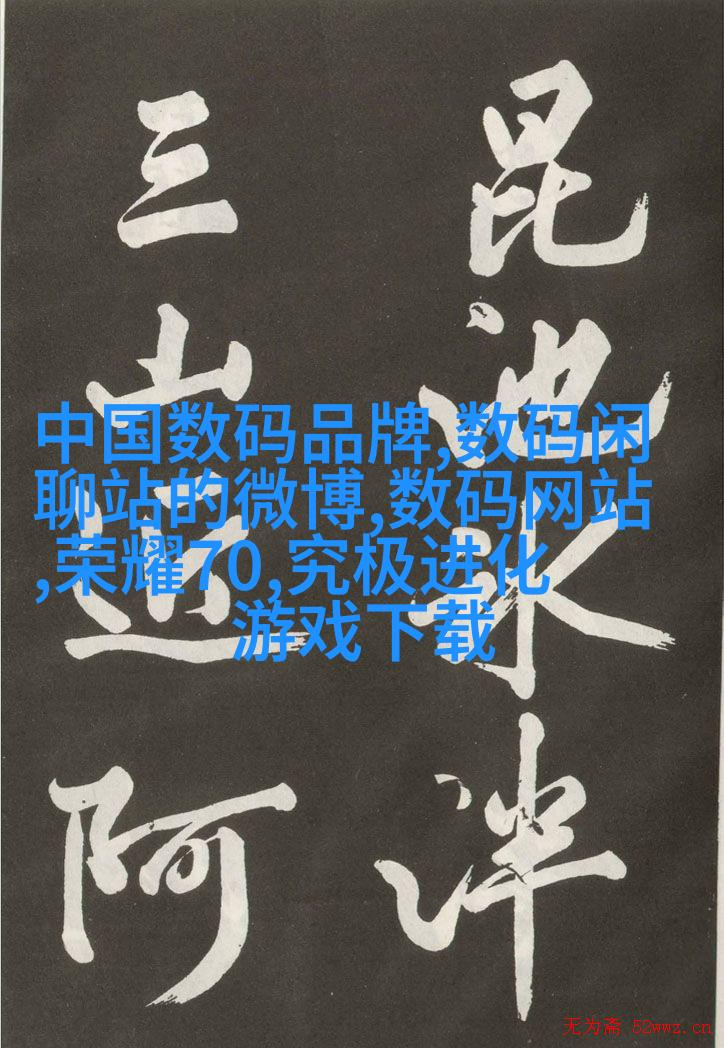 昆池水泮
三山近阿
中国数码品牌,数码闲
聊站的微博,数码网站
,荣耀70,究极进化
游戏下载
无为斋 52wwz.cn